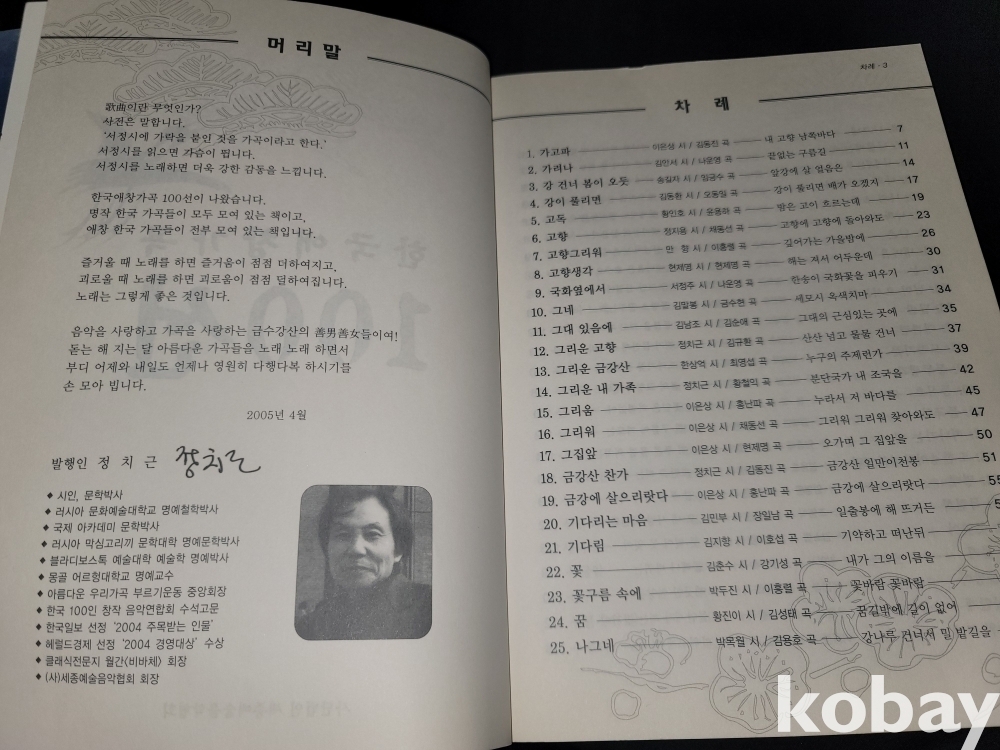 머 리 말
歌曲이란 무엇인가?
사전은 말합니다.
'서정시에 가락을 붙인 것을 가곡이라고 한다.'
서정시를 읽으면 가슴이 뜁니다.
서정시를 노래하면 더욱 강한 감동을 느낍니다.
한국애창가곡 100선이 나왔습니다.
명작 한국 가곡들이 모두 모여 있는 책이고,
애창 한국 가곡들이 전부 모여 있는 책입니다.
즐거울 때 노래를 하면 즐거움이 점점 더하여지고,
괴로울 때 노래를 하면 괴로움이 점점 덜하여집니다.
노래는 그렇게 좋은 것입니다.
음악을 사랑하고 가곡을 사랑하는 금수강산의 善男善女들이여!
돋는 해 지는 달 아름다운 가곡들을 노래 노래 하면서
부디 어제와 내일도 언제나 영원히 다행다복 하시기를
손 모아 빕니다.
2005년 4월
발행인 정 치 근 정치근
◆ 시인, 문학박사
◆ 러시아 문화예술대학교 명예철학박사
◆ 국제 아카데미 문학박사
◆ 러시아 막심고리끼 문학대학 명예문학박사
◆ 블라디보스톡 예술대학 예술학 명예박사
◆ 몽골 어르험대학교 명예교수
◆ 아름다운 우리가곡 부르기운동 중앙회장
◆ 한국 100인 창작 음악연합회 수석고문
◆ 한국일보 선정 '2004 주목받는 인물'
◆ 헤럴드경제 선정 '2004 경영대상' 수상
◆ 클래식전문지 월간〈비바체〉 회장
◆ (사)세종예술음악협회 회장
차례 · 3
차 례
1. 가고파 이은상 시 / 김동진 곡 내 고향 남쪽바다 7
2. 가려나 김안서 시 / 나운영 곡 끝없는 구름길 11
3. 강 건너 봄이 오듯 송길자 시 / 임긍수 곡 앞강에 살 얼음은 14
4. 강이 풀리면 김동환 시 / 오동일 곡 강이 풀리면 배가 오겠지 17
5. 고독 황인호 시 / 윤용하 곡 밤은 고이 흐르는데 19
6. 고향 정지용 시 / 채동선 곡 고향에 고향에 돌아와도 23
7. 고향그리워 만 향 시 / 이흥렬 곡 깊어가는 가을밤에 26
8. 고향생각 현제명 시 / 현제명 곡 해는 져서 어두운데 30
9. 국화옆에서 서정주 시 / 나운영 곡 한송이 국화꽃을 피우기 31
10. 그네 김말봉 시 / 금수현 곡 세모시 옥색치마 34
11. 그대 있음에 김남조 시 / 김순애 곡 그대의 근심있는 곳에 35
12. 그리운 고향 정치근 시 / 김규환 곡 산산 넘고 물물 건너 37
13. 그리운 금강산 한상억 시 / 최영섭 곡 누구의 주제런가 39
14. 그리운 내 가족 정치근 시 / 황철익 곡 분단국가 내 조국을 42
15. 그리움 이은상 시 / 홍난파 곡 누라서 저 바다를 45
16. 그리워 이은상 시 / 채동선 곡 그리워 그리워 찾아와도 47
17. 그집앞 이은상 시 / 현제명 곡 오가며 그 집앞을 50
18. 금강산 찬가 정치근 시 / 김동진 곡 금강산 일만이천봉 51
19. 금강에 살으리랏다 이은상 시 / 홍난파 곡 금강에 살으리랏다 55
20. 기다리는 마음 김민부 시 / 장일남 곡 일출봉에 해 뜨거든
21. 기다림 김지향 시 / 이호섭 곡 기약하고 떠난뒤
22. 꽃 김춘수 시 / 강기성 곡 내가 그의 이름을
23. 꽃구름 속에 박두진 시 / 이흥렬 곡 꽃바람 꽃바람
24. 꿈 황진이 시 / 김성태 곡 꿈길밖에 길이 없어
25. 나그네 박목월 시 / 김용호 곡 강나루 건너서 밀 밭길을
kobay